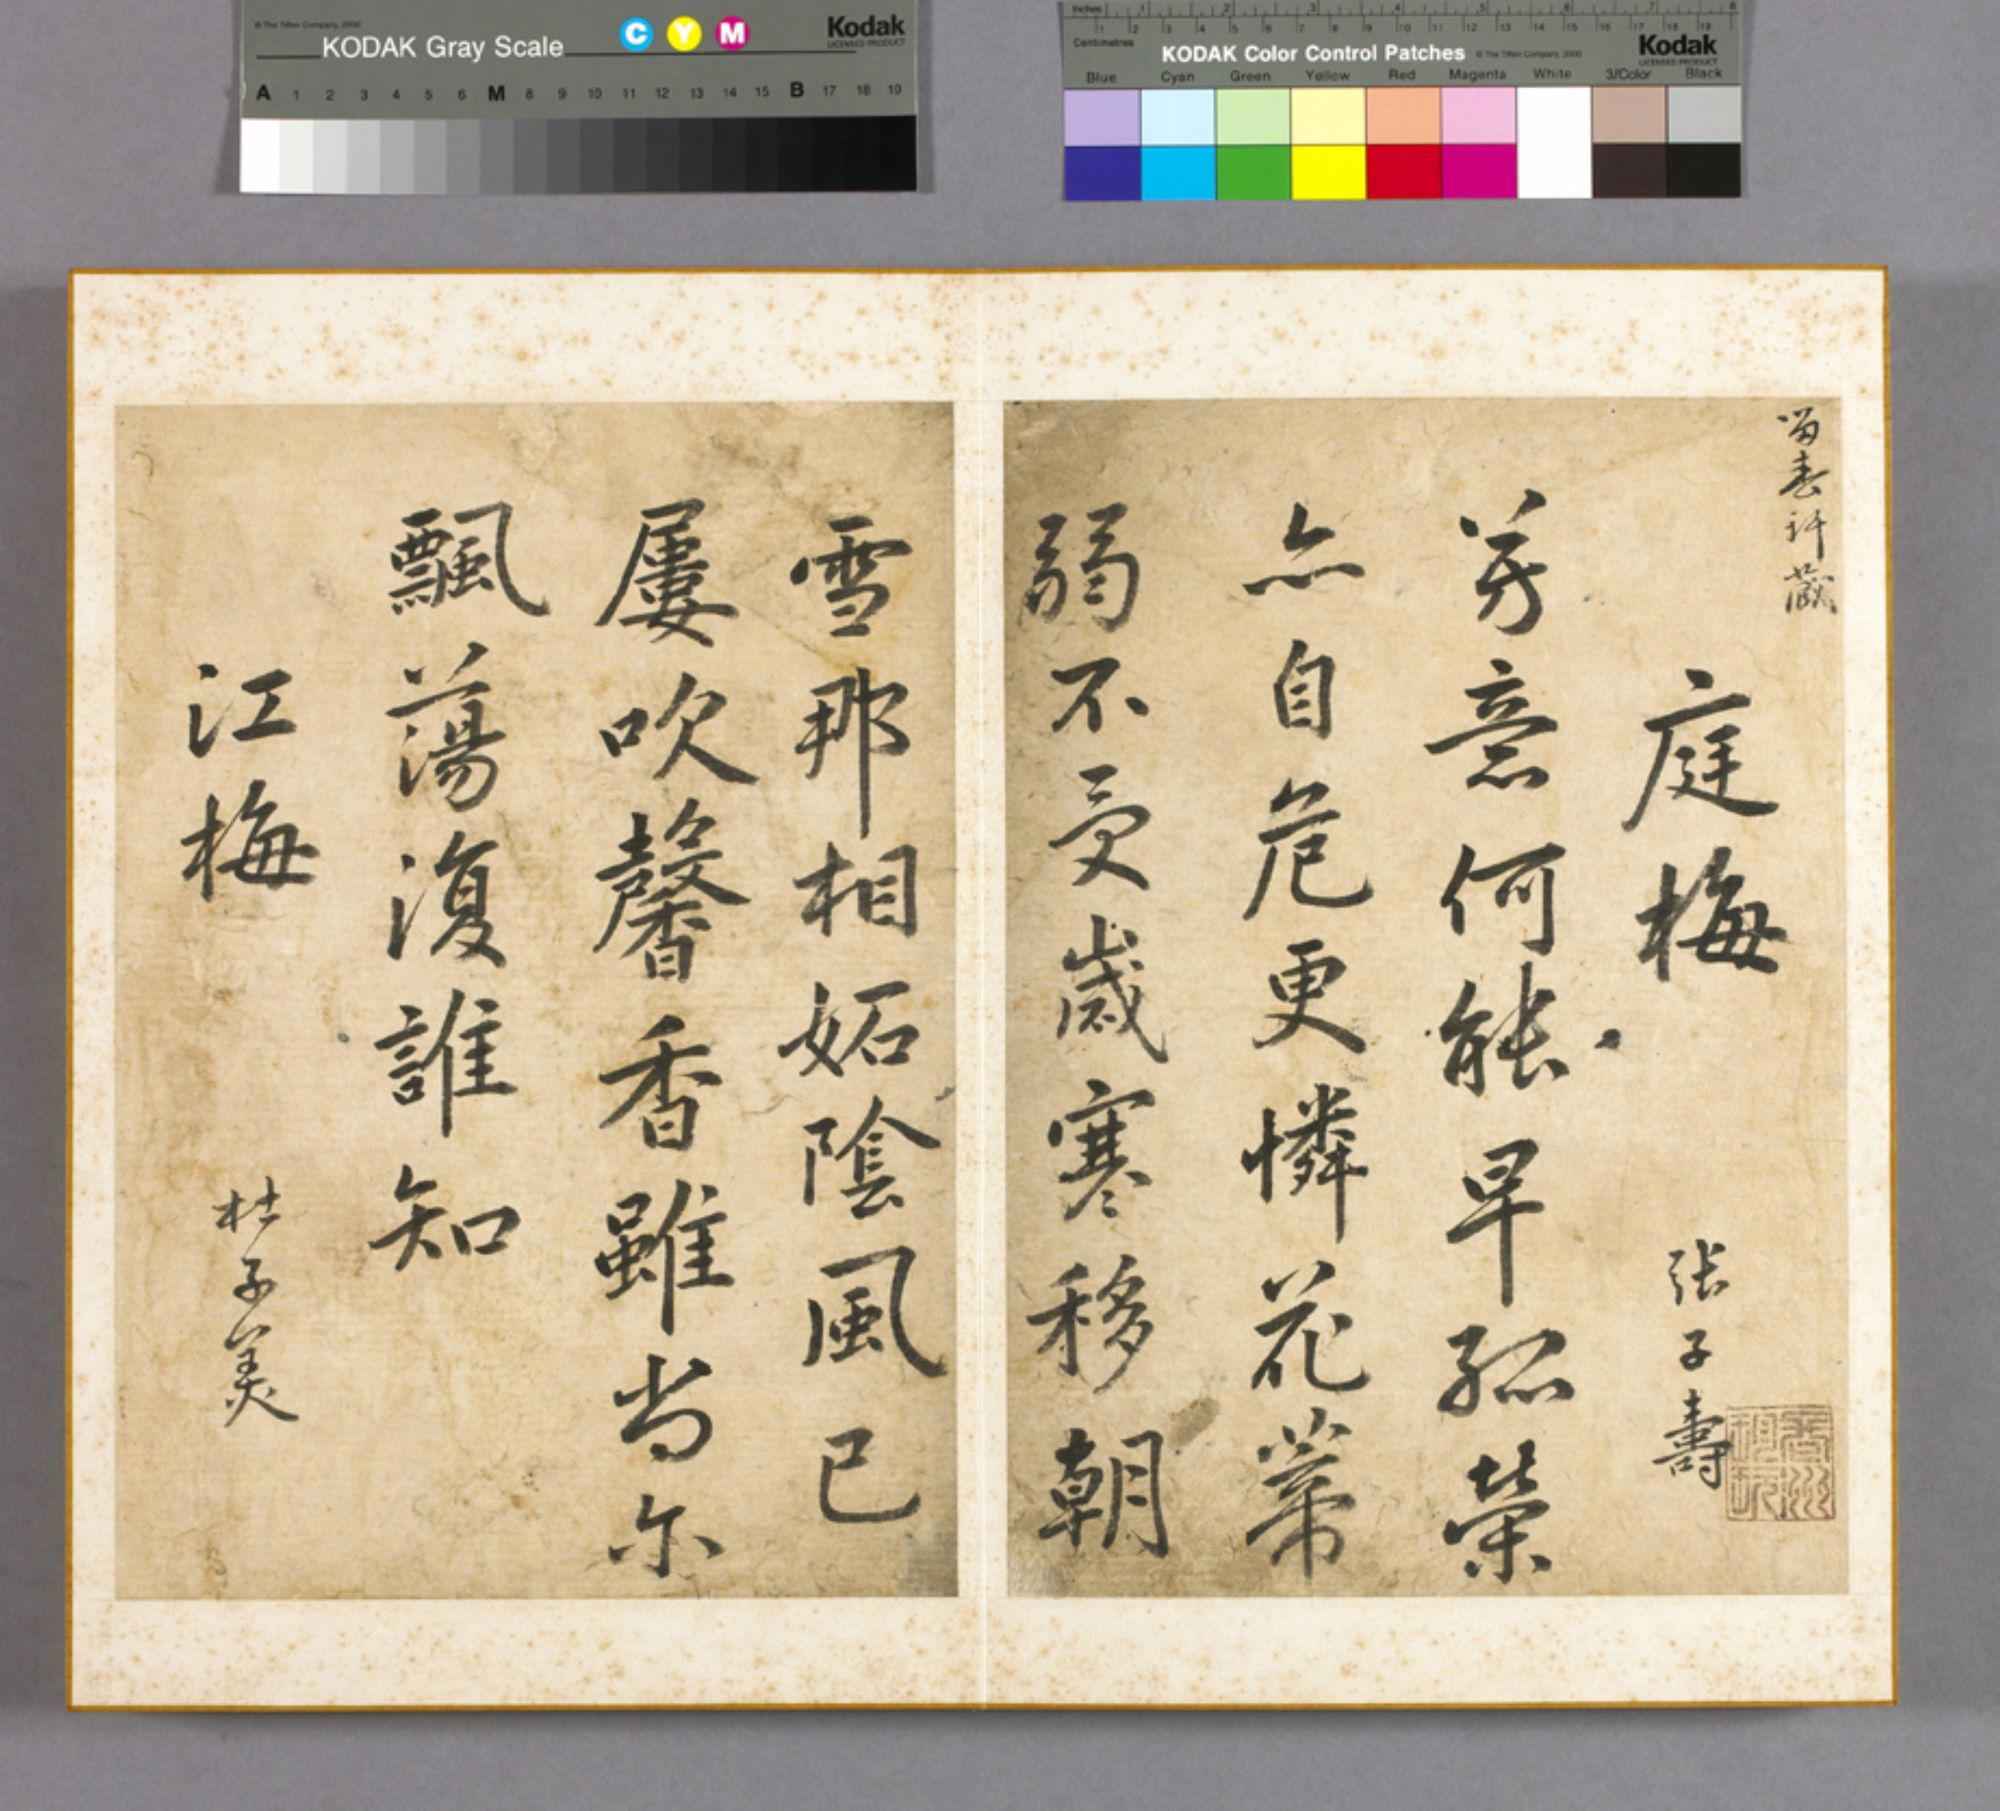 © The Tiffen Company, 2000
KODAK Gray Scale
C Y M
Kodak
LICENSED PRODUCT
A 1 2 3 4 5 6 M 8 9 10 11 12 13 14 15 B 17 18 19
Inches 1 2 3 4 5 6 7 8
1 2 3 4 5 6 7 8 9 10 11 12 13 14 15 16 17 18 19
Centimetres
KODAK Color Control Patches
© The Tiffen Company, 2000
Kodak
LICENSED PRODUCT
Blue Cyan Green Yellow Red Magenta White 3/Color Black
留春許藏
庭梅 張子壽
芳意何能早孤榮
亦自危更憐花蒂
弱不受歲寒移朝
雪那相妬陰風已
屢吹馨香雖尚尔
飄蕩復誰知
江梅 杜子美